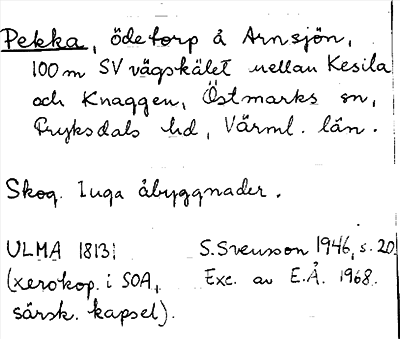 Pekka, ödetorp å Arnsjön,
100 m SV vägskälet mellan Kesila
och Knaggen, Östmarks sn,
Fryksdals hd, Värml. län.
Skog. Inga åbyggnader.
ULMA 18131 S. Svensson 1946, s. 20.
(xerokop. i SOA, Exc. av E.Å. 1968.
särsk. kapsel).